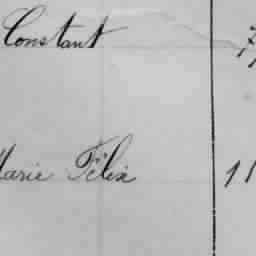 Constant
Marie Félix 11